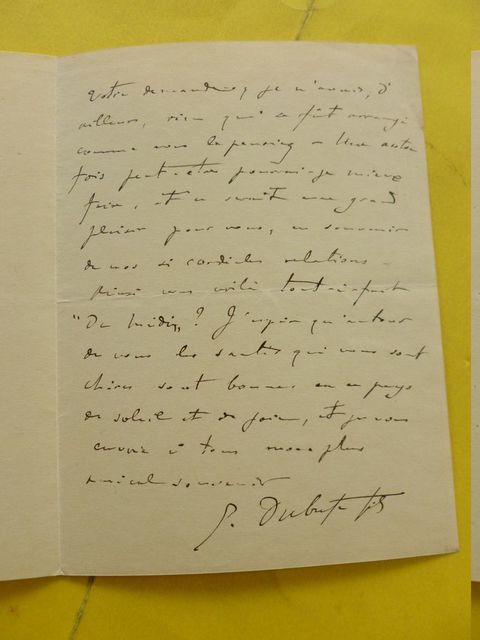 votre demandiez, je n'avais, d'
ailleurs, rien qui se fût arrangé
comme vous le pensiez — Une autre
fois peut-être pourrai-je mieux
faire, et ce serait un grand
plaisir pour vous, en souvenir
de nos si cordiales relations —
Ainsi vous voilà tout-à-fait
"Du Midi" ? J'espère qu'autour
de vous les santés qui vous sont
chères sont bonnes en ce pays
de soleil et de joie, et je vous
envoie à tous mon plus
amical souvenir
G. Dubufe fils